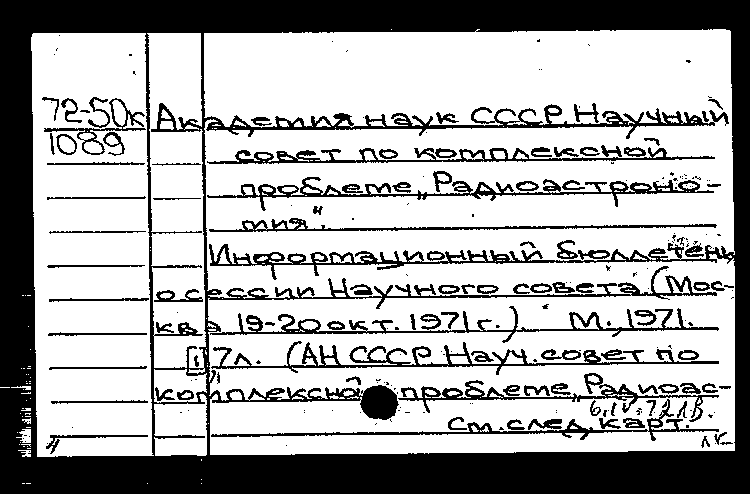 72-50к Академия наук СССР. Научный
1089 совет по комплексной
проблеме „Радиоастроно-
мия".
Информационный бюллетень
о сессии Научного совета (Мос-
ква 19-20 окт. 1971 г.). М., 1971.
[1] 7л. (АН СССР. Науч. совет по
комплексной проблеме „Радиоас-
6.IV.72 ЛВ.
см. след. карт.